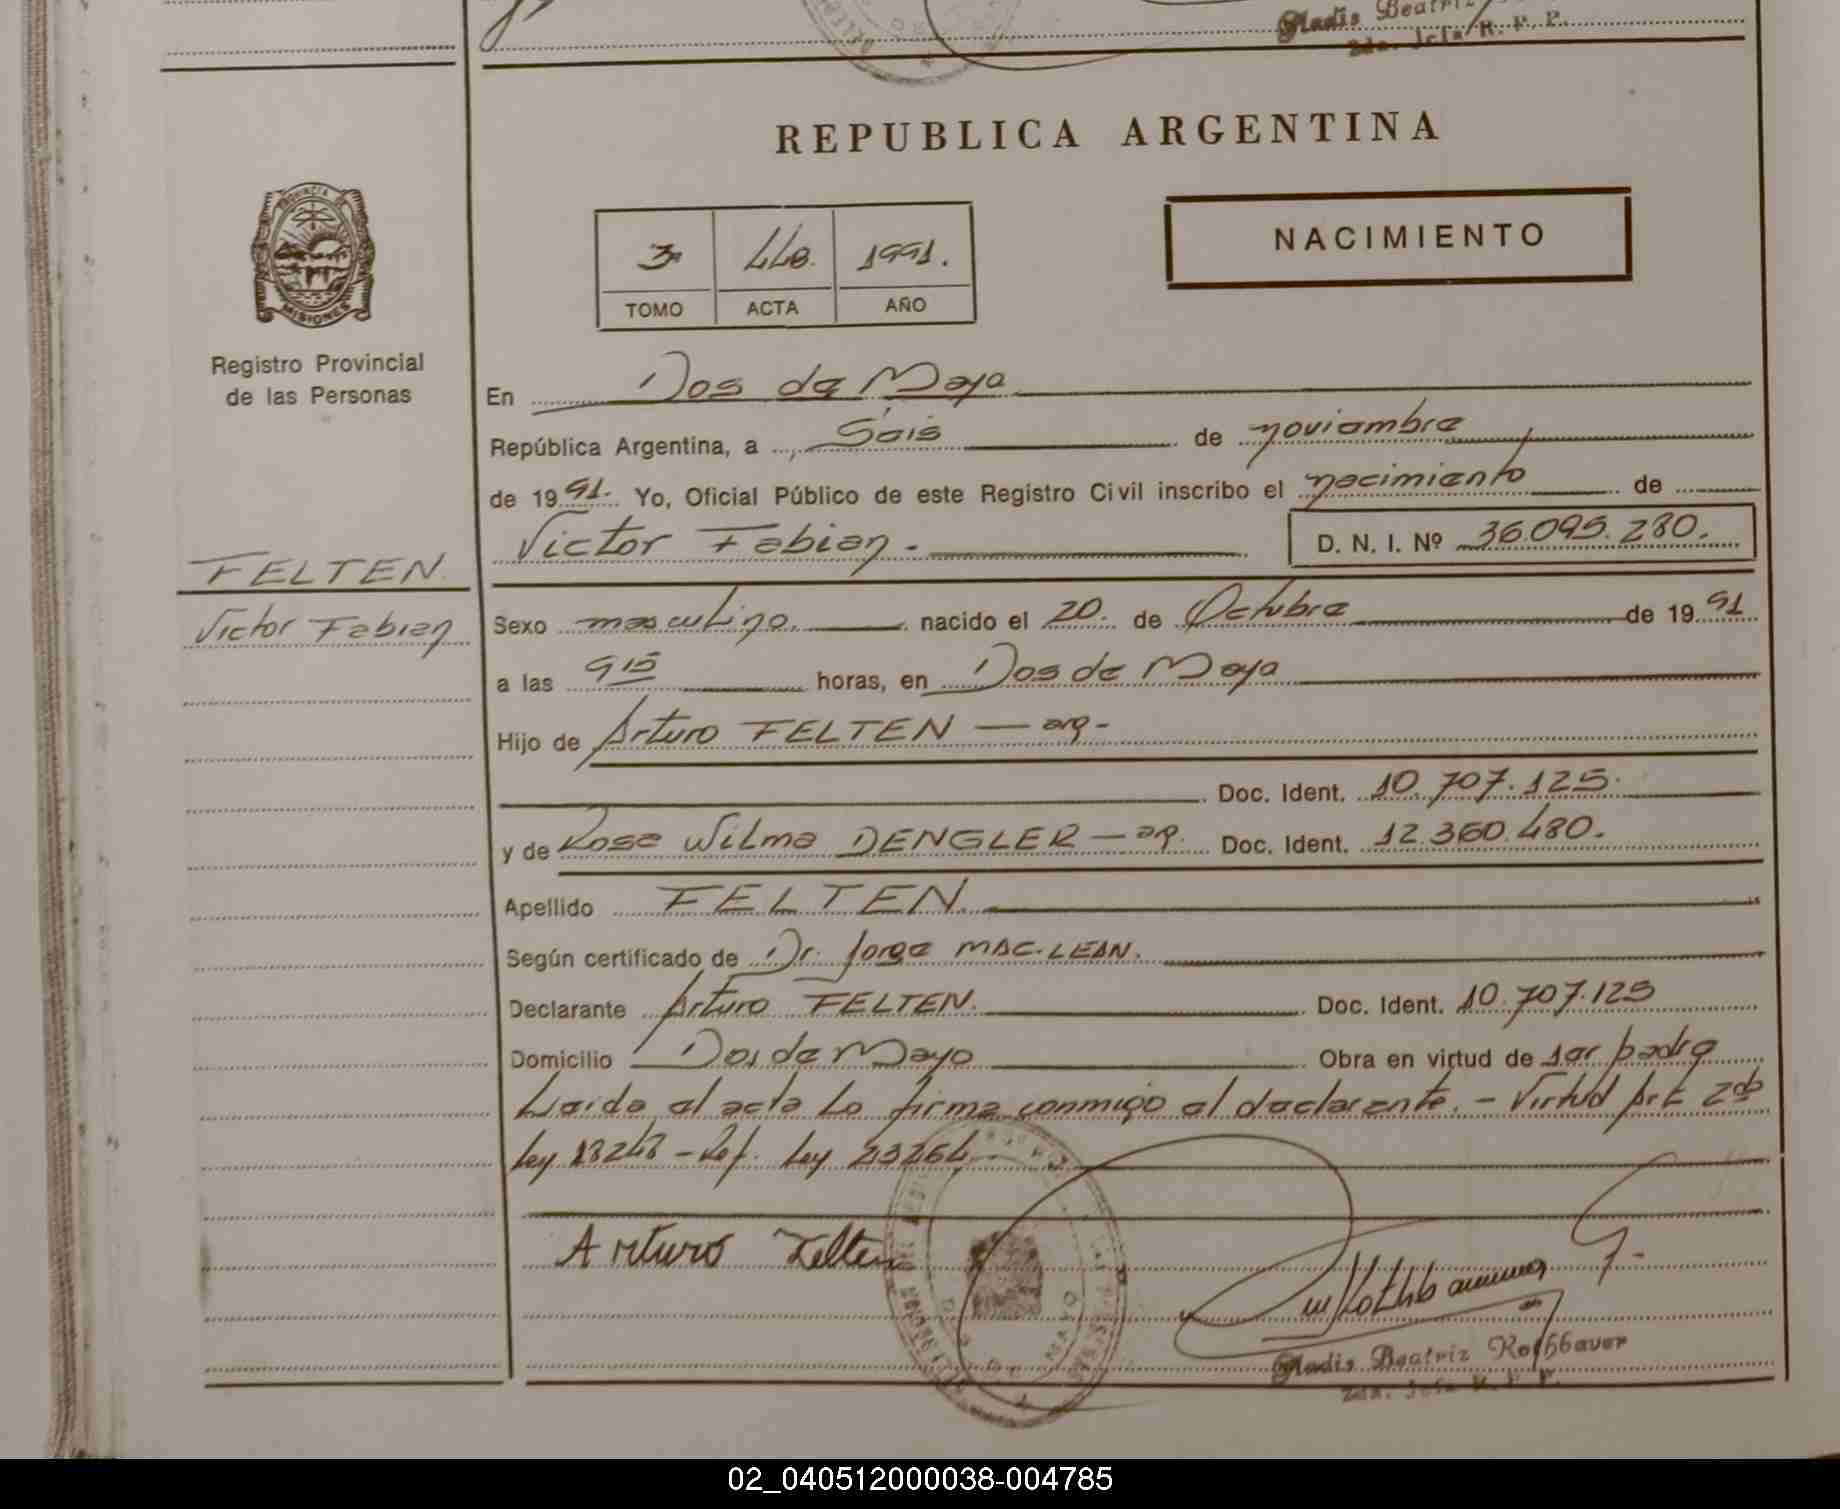 Gladis Beatriz
2da. Jefa R. P. P.
REPUBLICA ARGENTINA
PROVINCIA DE
MISIONES
Registro Provincial
de las Personas
3º 448. 1991.
TOMO ACTA AÑO
NACIMIENTO
En Dos de Mayo
República Argentina, a Seis de noviembre
de 1991. Yo, Oficial Público de este Registro Civil inscribo el nacimiento de
Victor Fabian. D. N. I. Nº 36.095.280.
FELTEN
Victor Fabian
Sexo masculino. nacido el 20. de Octubre de 1991
a las 9 15 horas, en Dos de Mayo
Hijo de Arturo FELTEN — arg-
Doc. Ident. 10.707.125.
y de Rosa Wilma DENGLER — arg. Doc. Ident. 12.360.480.
Apellido FELTEN.
Según certificado de Dr. Jorge MAC-LEAN.
Declarante Arturo FELTEN. Doc. Ident. 10.707.125
Domicilio Dos de Mayo Obra en virtud de ser padre
Leida el acta Lo firma conmigo el declarante. - Virtud Art. 2do
Ley 18248 - Ref. Ley 23264.-
Arturo Felten
DOS DE MAYO
Gladis Beatriz Rothbauer
2da. Jefa R. P. P.
02_040512000038-004785